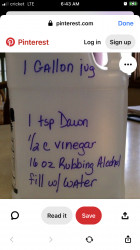 cricket LTE 6:43 AM
pinterest.com
Done
Pinterest
Log in
Sign up
1 Gallon jug
1 tsp Dawn
1/2 c vinegar
16 oz Rubbing Alcohol
fill w/ water
Read it
Save